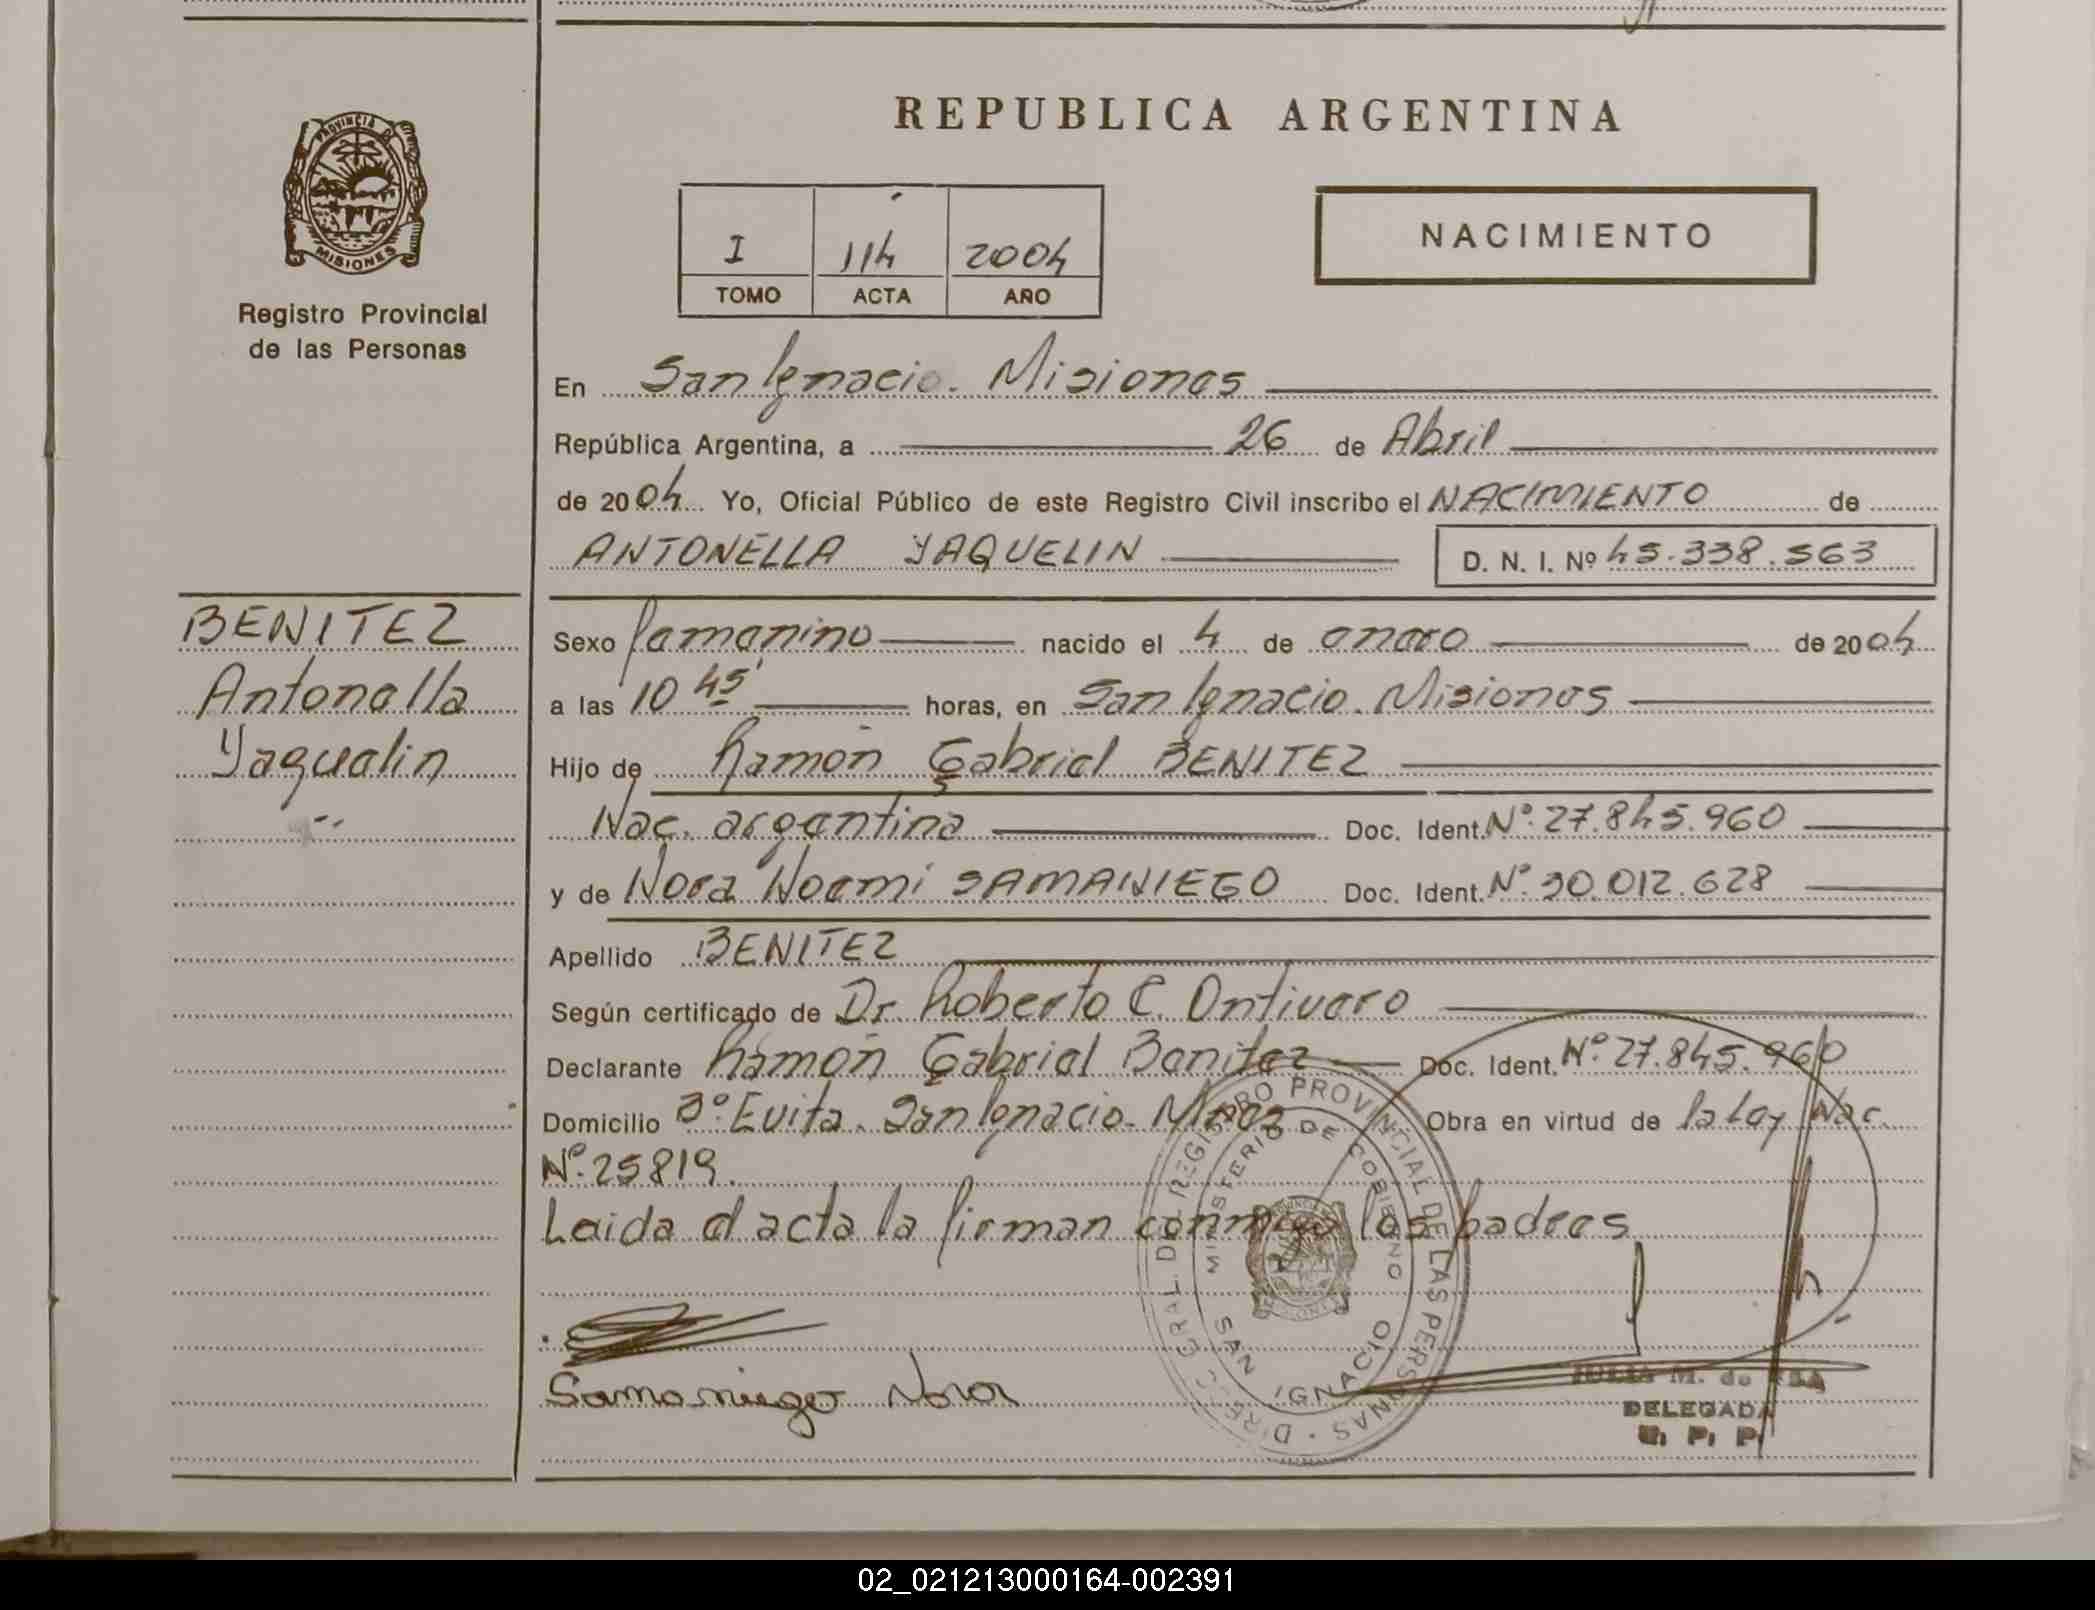 PROVINCIA DE
MISIONES
Registro Provincial
de las Personas
BENITEZ
Antonella
Yaquelin
REPUBLICA ARGENTINA
I 114 2004
TOMO ACTA AÑO
NACIMIENTO
En San Ignacio. Misiones
República Argentina, a 26 de Abril
de 2004 Yo, Oficial Público de este Registro Civil inscribo el NACIMIENTO de
ANTONELLA YAQUELIN D. N. I. Nº 45.338.563
Sexo femenino nacido el 4 de enero de 2004
a las 10 45 horas, en San Ignacio. Misiones
Hijo de Ramón Gabriel BENITEZ
Nac. argentina Doc. Ident. Nº 27.845.960
y de Nora Noemí SAMANIEGO Doc. Ident. Nº 30.012.628
Apellido BENITEZ
Según certificado de Dr. Roberto C. Ontivero
Declarante Ramón Gabriel Benitez Doc. Ident. Nº 27.845.960
Domicilio Bº Evita. San Ignacio. Mnes Obra en virtud de la Ley Nac.
Nº 25819.
Leida el acta la firman conmigo los padres
Samaniego Nora
DIRECC. GRAL. DEL REGISTRO PROVINCIAL DE LAS PERSONAS
MINISTERIO DE GOBIERNO
SAN IGNACIO
JULIA M. de
DELEGADA
R. P. P.
02_021213000164-002391